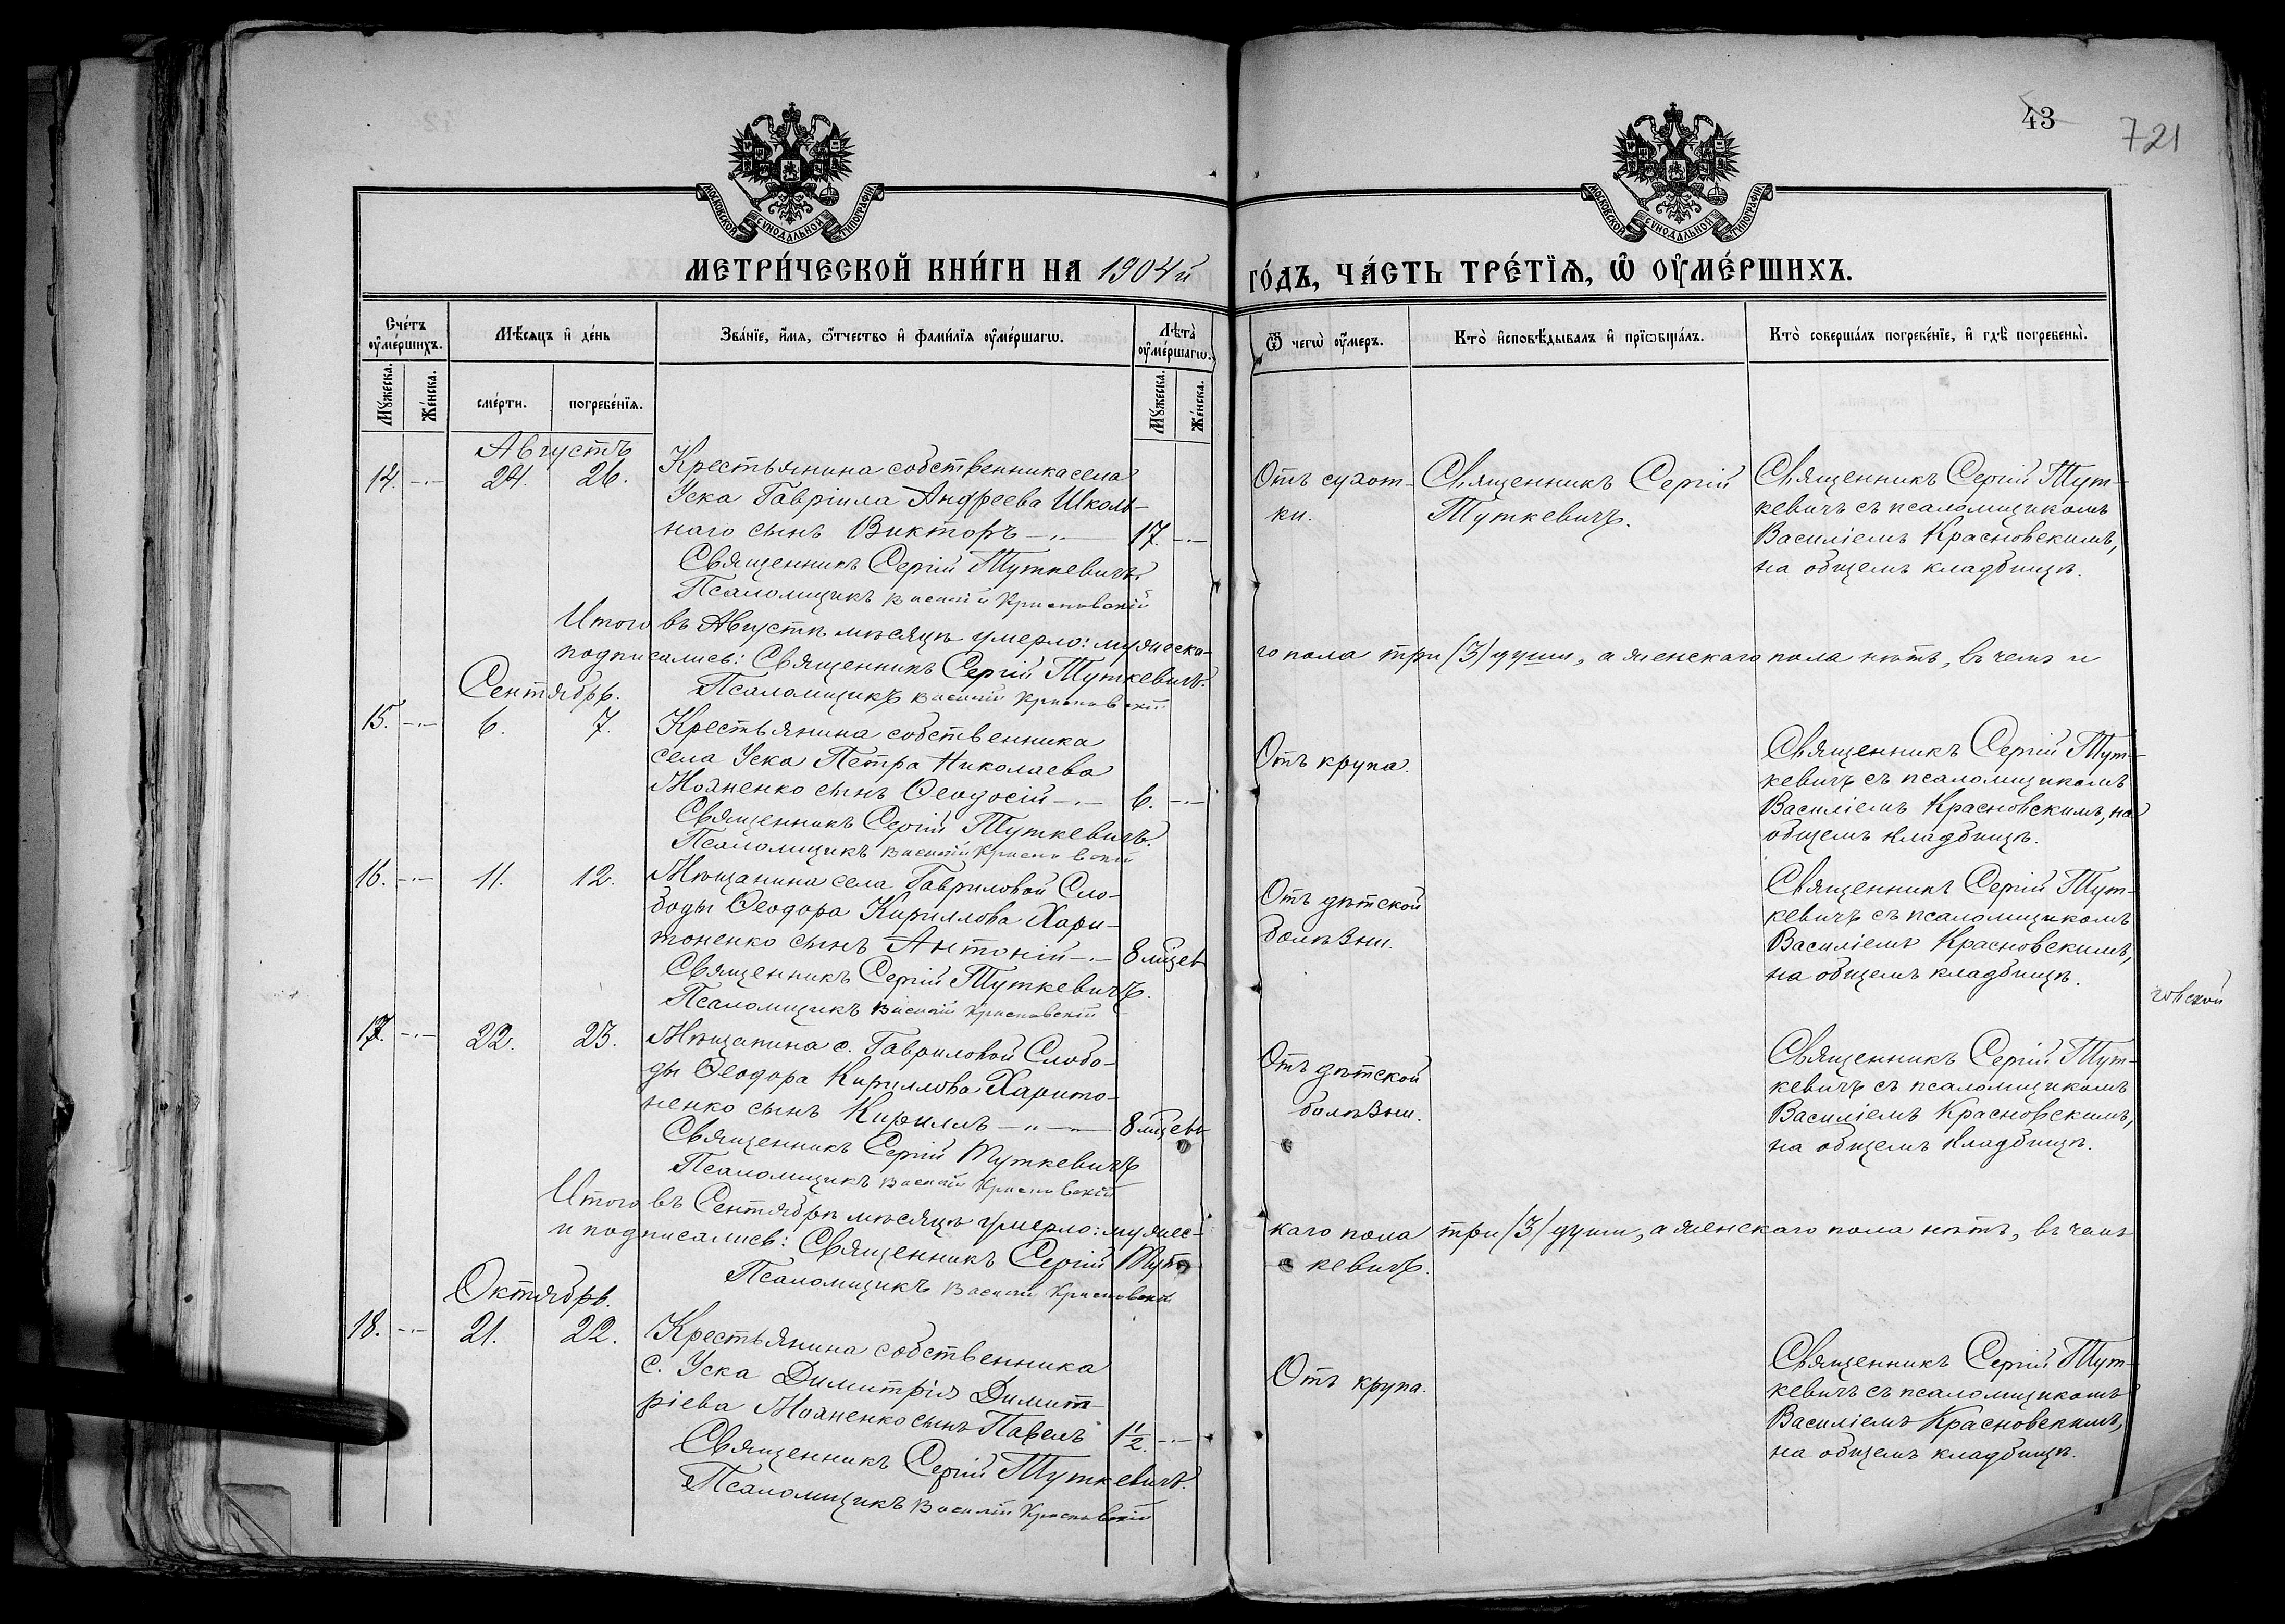 43
721
МОСКОВСКОЙ СѴНОДАЛЬНОЙ ТИПОГРАФІИ
МОСКОВСКОЙ СѴНОДАЛЬНОЙ ТИПОГРАФІИ
МЕТРИ́ЧЕСКОЙ КНИ́ГИ НА 1904й
ГО́ДЪ, ЧА́СТЬ ТРЕ́ТІѦ, Ѡ҆ ОУ҆МЕ́РШИХЪ.
Сче́тъ оу҆ме́ршихъ.
Мѣ́сяцъ и҆ де́нь
Зва́нїе, и҆́мѧ, ѻ҆́тчество и҆ фами́лїѧ оу҆ме́ршагѡ.
Лѣта̀ оу҆ме́ршагѡ.
Ѿ чегѡ̀ оу҆́меръ.
Кто̀ и҆сповѣ́дывалъ и҆ прїѡбща́лъ.
Кто̀ соверша́лъ погребе́нїе, и҆ гдѣ̀ погребены̀.
Мꙋ́жеска.
Же́нска.
сме́рти.
погребе́нїѧ.
Мꙋ́жеска.
Же́нска.
Августъ
14. -"- 24. 26. Крестьянина собственника села
Уска Гавріила Андреева Школь-
наго сынъ Викторъ -"- 17. -"-
Священникъ Сергій Туткевичъ.
Псаломщикъ Василій Красновскій
Отъ сухот-
ки.
Священникъ Сергій
Туткевичъ.
Священникъ Сергій Тут-
кевичъ съ псаломщикомъ
Василіемъ Красновскимъ,
на общемъ кладбищѣ.
Итого въ Августѣ мѣсяцѣ умерло: мужеска-
го пола три /3/ души, а женскаго пола нѣтъ, въ чемъ и
подписались: Священникъ Сергій Туткевичъ.
Псаломщикъ Василій Красновскій
Сентябрь.
15. -"- 6. 7. Крестьянина собственника
села Уска Петра Николаева
Можненко сынъ Ѳеодосій -"- 6. -"-
Священникъ Сергій Туткевичъ.
Псаломщикъ Василій Красновскій
Отъ крупа.
Священникъ Сергій Тут-
кевичъ съ псаломщикомъ
Василіемъ Красновскимъ, на
общемъ кладбищѣ.
16. -"- 11. 12. Мѣщанина села Гавриловой Сло-
боды Ѳеодора Кириллова Хари-
тоненко сынъ Антоній -"- 8 мцевъ
Священникъ Сергій Туткевичъ.
Псаломщикъ Василій Красновскій
Отъ дѣтской
болѣзни.
Священникъ Сергій Тут-
кевичъ съ псаломщикомъ
Василіемъ Красновскимъ,
на общемъ кладбищѣ.
17. -"- 22. 23. Мѣщанина с. Гавриловой Слобо-
ды Ѳеодора Кириллова Харито-
ненко сынъ Кириллъ -"- 8 мцевъ
Священникъ Сергій Туткевичъ
Псаломщикъ Василій Красновскій
Отъ дѣтской
болѣзни.
Священникъ Сергій Тут-
кевичъ съ псаломщикомъ
Василіемъ Красновскимъ,
на общемъ кладбищѣ.
Итого въ Сентябрѣ мѣсяцѣ умерло: мужес-
каго пола три /3/ души, а женскаго пола нѣтъ, въ чемъ
и подписались: Священникъ Сергій Тут-
кевичъ.
Псаломщикъ Василій Красновскій
Октябрь.
18. -"- 21. 22. Крестьянина собственника
с. Уска Димитрія Димит-
ріева Можненко сынъ Павелъ 1 1/2. -"-
Священникъ Сергій Туткевичъ.
Псаломщикъ Василій Красновскій
Отъ крупа.
Священникъ Сергій Тут-
кевичъ съ псаломщикомъ
Василіемъ Красновскимъ,
на общемъ кладбищѣ.